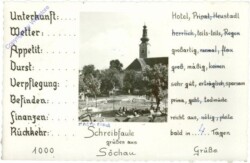 Unterkunft: Hotel, Privat, Heustadl
Wetter: herrlich, teils-teils, Regen
Appetit: großartig, normal, flau
Durst: groß, mäßig, keinen
Verpflegung: sehr gut, erträglich,
Befinden: prima, gut,
Finanzen: reicht aus, nötig, pleite
Rückkehr: bald in 4. Tagen
Schreibfaule
1000 grüßen aus Grüße.
Söchau